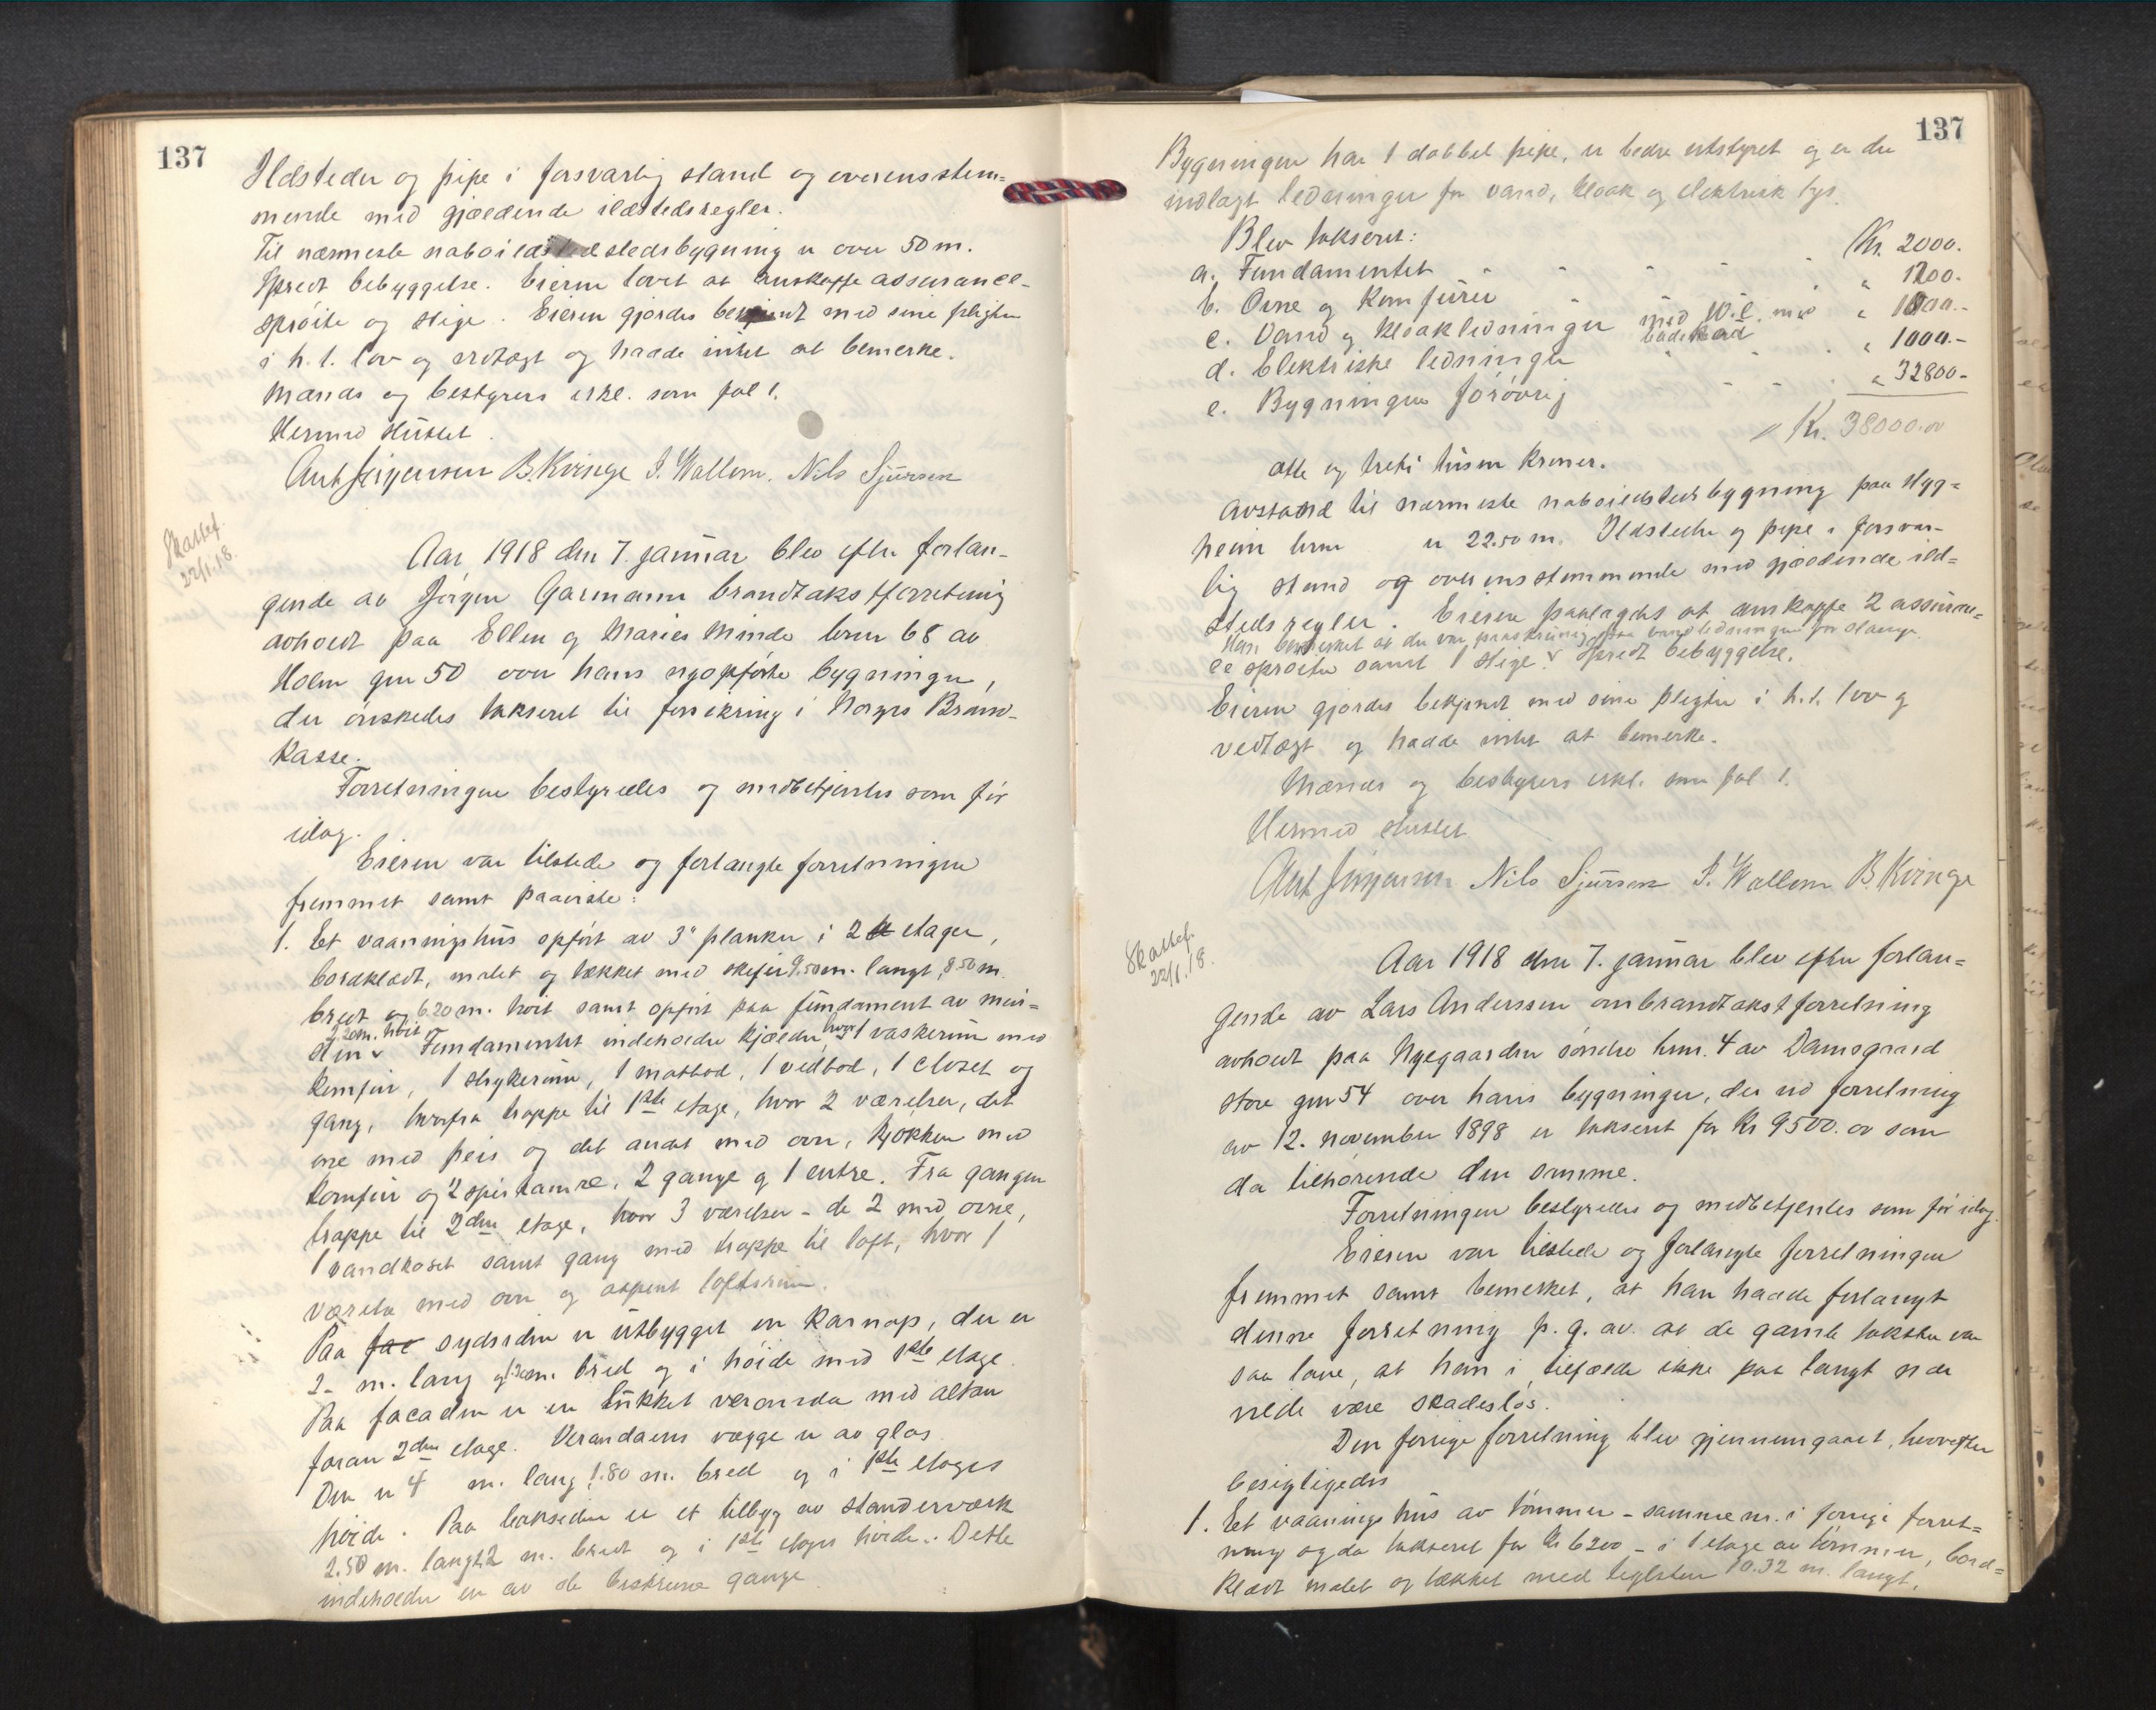 137
Ildsteder og pipe i forsvarlig stand og overensstem=
mende med gjældende ildstedsregler.
Til nærmeste naboildstedsbygning er over 50 m.
Spredt bebyggelse. Eieren lovet at anskaffe assurance-
sprøite og stige. Eieren gjordes bekjendt med sine pligter
i h. t. lov og vedtægt og hadde intet at bemerke.
Mænds og bestyrers erkl. som fol 1.
Hermed sluttet.
Ant Jørgensen B. Kvinge I. Wallem. Nils Sjursen
Skattef.
22/1.18.
Aar 1918 den 7. januar blev efter forlan-
gende av Jørgen Garmann brandtakstforretning
avholdt paa Ellen og Maries Minde brnr 68 av
Holen gnr 50 over hans nyopførte bygninger,
der ønskedes takseret til forsikring i Norges Brand-
kasse.
Forretningen bestyredes og medbetjentes som før
idag.
Eieren var tilstede og forlangte forretningen
fremmet samt paaviste:
1. Et vaaningshus opført av 3" planker i 2 etager,
bordklædt, malet og tækket med skifer 9.50 m. langt, 8.50 m.
bredt og 6.20 m. høit samt opført paa fundament av mur=
2.20 m. høit
sten v Fundamentet indeholder kjælder, hvor 1 vaskerum med
komfur, 1 strykerum, 1 matbod, 1 vedbod, 1 closet og
gang, hvorfra trappe til 1ste etage, hvor 2 værelser, det
ene med peis og det andet med ovn, kjøkken med
komfur og 2 spiskamre, 2 gange og 1 entre. Fra gangen
trappe til 2den etage, hvor 3 værelser - de 2 med ovne,
1 vandkloset samt gang med trappe til loft, hvor 1
værelse med ovn og aapent loftsrum.
Paa fac sydsiden er utbygget en karnap, der er
2- m. lang og m. bred og i høide med 1ste etage.
Paa facaden er en lukket veranda med altan
foran 2den etage. Verandaens vægge er av glas.
Den er 4 m. lang 1.80 m. bred og i 1ste etages
høide. Paa baksiden er et tilbygg av standerværk
2.50 m. langt, 2 m. bredt og i 1ste etages høide. Dette
indeholder en av de beskrevne gange
137
Bygningen har 1 dobbel pipe, er bedre utstyret og er der
indlagt ledninger for vand, kloak og elektrisk lys.
Blev takseret:
a. Fundamentet - - - - - Kr. 2000.
b. Ovne og Komfurer - " 1200.
c. Vand og kloakledninger med W.C. med badekar " 1000.-
d. Elektriske ledninger - - - " 1000.-
e. Bygningen forøvrig - - " 32800-
Kr. 38000.00
otte og treti tusen kroner.
Avstand til nærmeste naboildstedsbygning paa Hyg=
heim brnr er 22.50 m. Ildsteder og pipe i forsvar-
lig stand og overensstemmende med gjældende ild=
stedsregler. Eieren paalagdes at anskaffe 2 assuran=
Han bemerket at der var paaskruing paa vandledningen for slange.
ce sprøiter samt 1 stige. v Spredt bebyggelse.
Eieren gjordes bekjendt med sine pligter i h. t. lov og
vedtægt og hadde intet at bemerke.
Mænds og bestyrers erkl. som fol 1.
Hermed sluttet
Ant Jørgensen Nils Sjursen I. Wallem B Kvinge
Skattef.
22/1.18.
Aar 1918 den 7. januar blev efter forlan=
gende av Lars Anderssen ombrandtakstforretning
avholdt paa Nygaarden søndre brnr. 4 av Damsgaard
store gnr 54 over hans bygninger, der ved forretning
av 12. november 1898 er takseret for Kr 9500.00 som
da tilhørende den samme.
Forretningen bestyredes og medbetjentes som før idag.
Eieren var tilstede og forlangte forretningen
fremmet samt bemerket, at han hadde forlangt
denne forretning p. g. av. at de gamle takster var
saa lave, at han i tilfælde ikke paa langt nær
vilde være skadesløs.
Den forrige forretning blev gjennemgaaet, hvorefter
besigtigedes
1. Et vaaningshus av tømmer - samme nr. i forrige forret=
ning og da takseret for Kr 6200 - i 1 etage av tømmer, bord=
klædt malet og tækket med teglsten 10.32 m. langt,